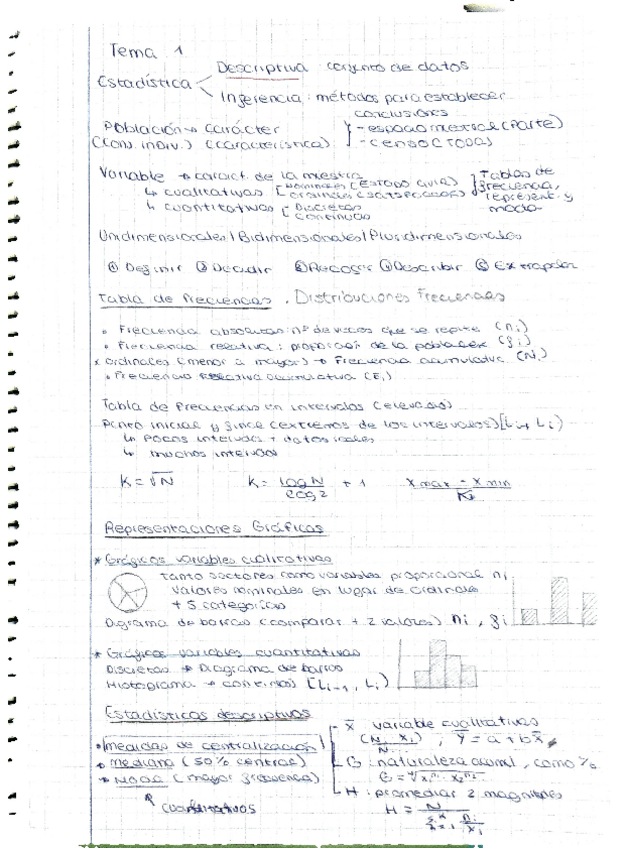 Tema 1
Descriptiva: conjunto de datos
Estadística
Inferencia: métodos para establecer
conclusiones
Población → carácter - espacio muestral (parte)
(conj. indiv.) (característica) - censo (todo)
Variable → caract. de la muestra
↳ cualitativas [nominales (estado civil) ordinales (satisfacción)
↳ cuantitativas [Discretas Continuas
Tablas de frecuencia, represent. y moda
Unidimensionales / Bidimensionales / Pluridimensionales
① Definir ② Decidir ③ Recoger ④ Describir ⑤ Extrapolar
Tabla de Frecuencias. Distribuciones Frecuencias
• Frecuencia absoluta: nº de veces que se repite (ni)
• Frecuencia relativa: proporción de la población (fi)
x ordinales (menor a mayor) → Frecuencia acumulativa (Ni)
• Frecuencia relativa acumulativa (Fi)
Tabla de Frecuencias en intervalos (elevados)
Punto inicial y final (extremos de los intervalos) [Li-1, Li)
↳ Pocos intervalos + datos
↳ muchos intervalos
K = √N K = log N / log 2 + 1 x max - x min / Ki
Representaciones Gráficas
* Gráficos variables cualitativas
tanto sectores como variables proporcional ni
valores nominales en lugar de ordinales
+ 5 categorías
Digrama de barras (comparar + 2 valores) ni, fi
* Gráficos variables cuantitativas
Discretas → Diagrama de barras
Histograma → continuas [Li-1, Li)
Estadísticos descriptivos
• medidas de centralización
• mediana (50% central)
• Moda (mayor frecuencia)
cuantitativas
x̄ variable cualitativas
; ȳ = a + b x̄
G: naturaleza acumul, como %
H: promediar 2 magnitudes